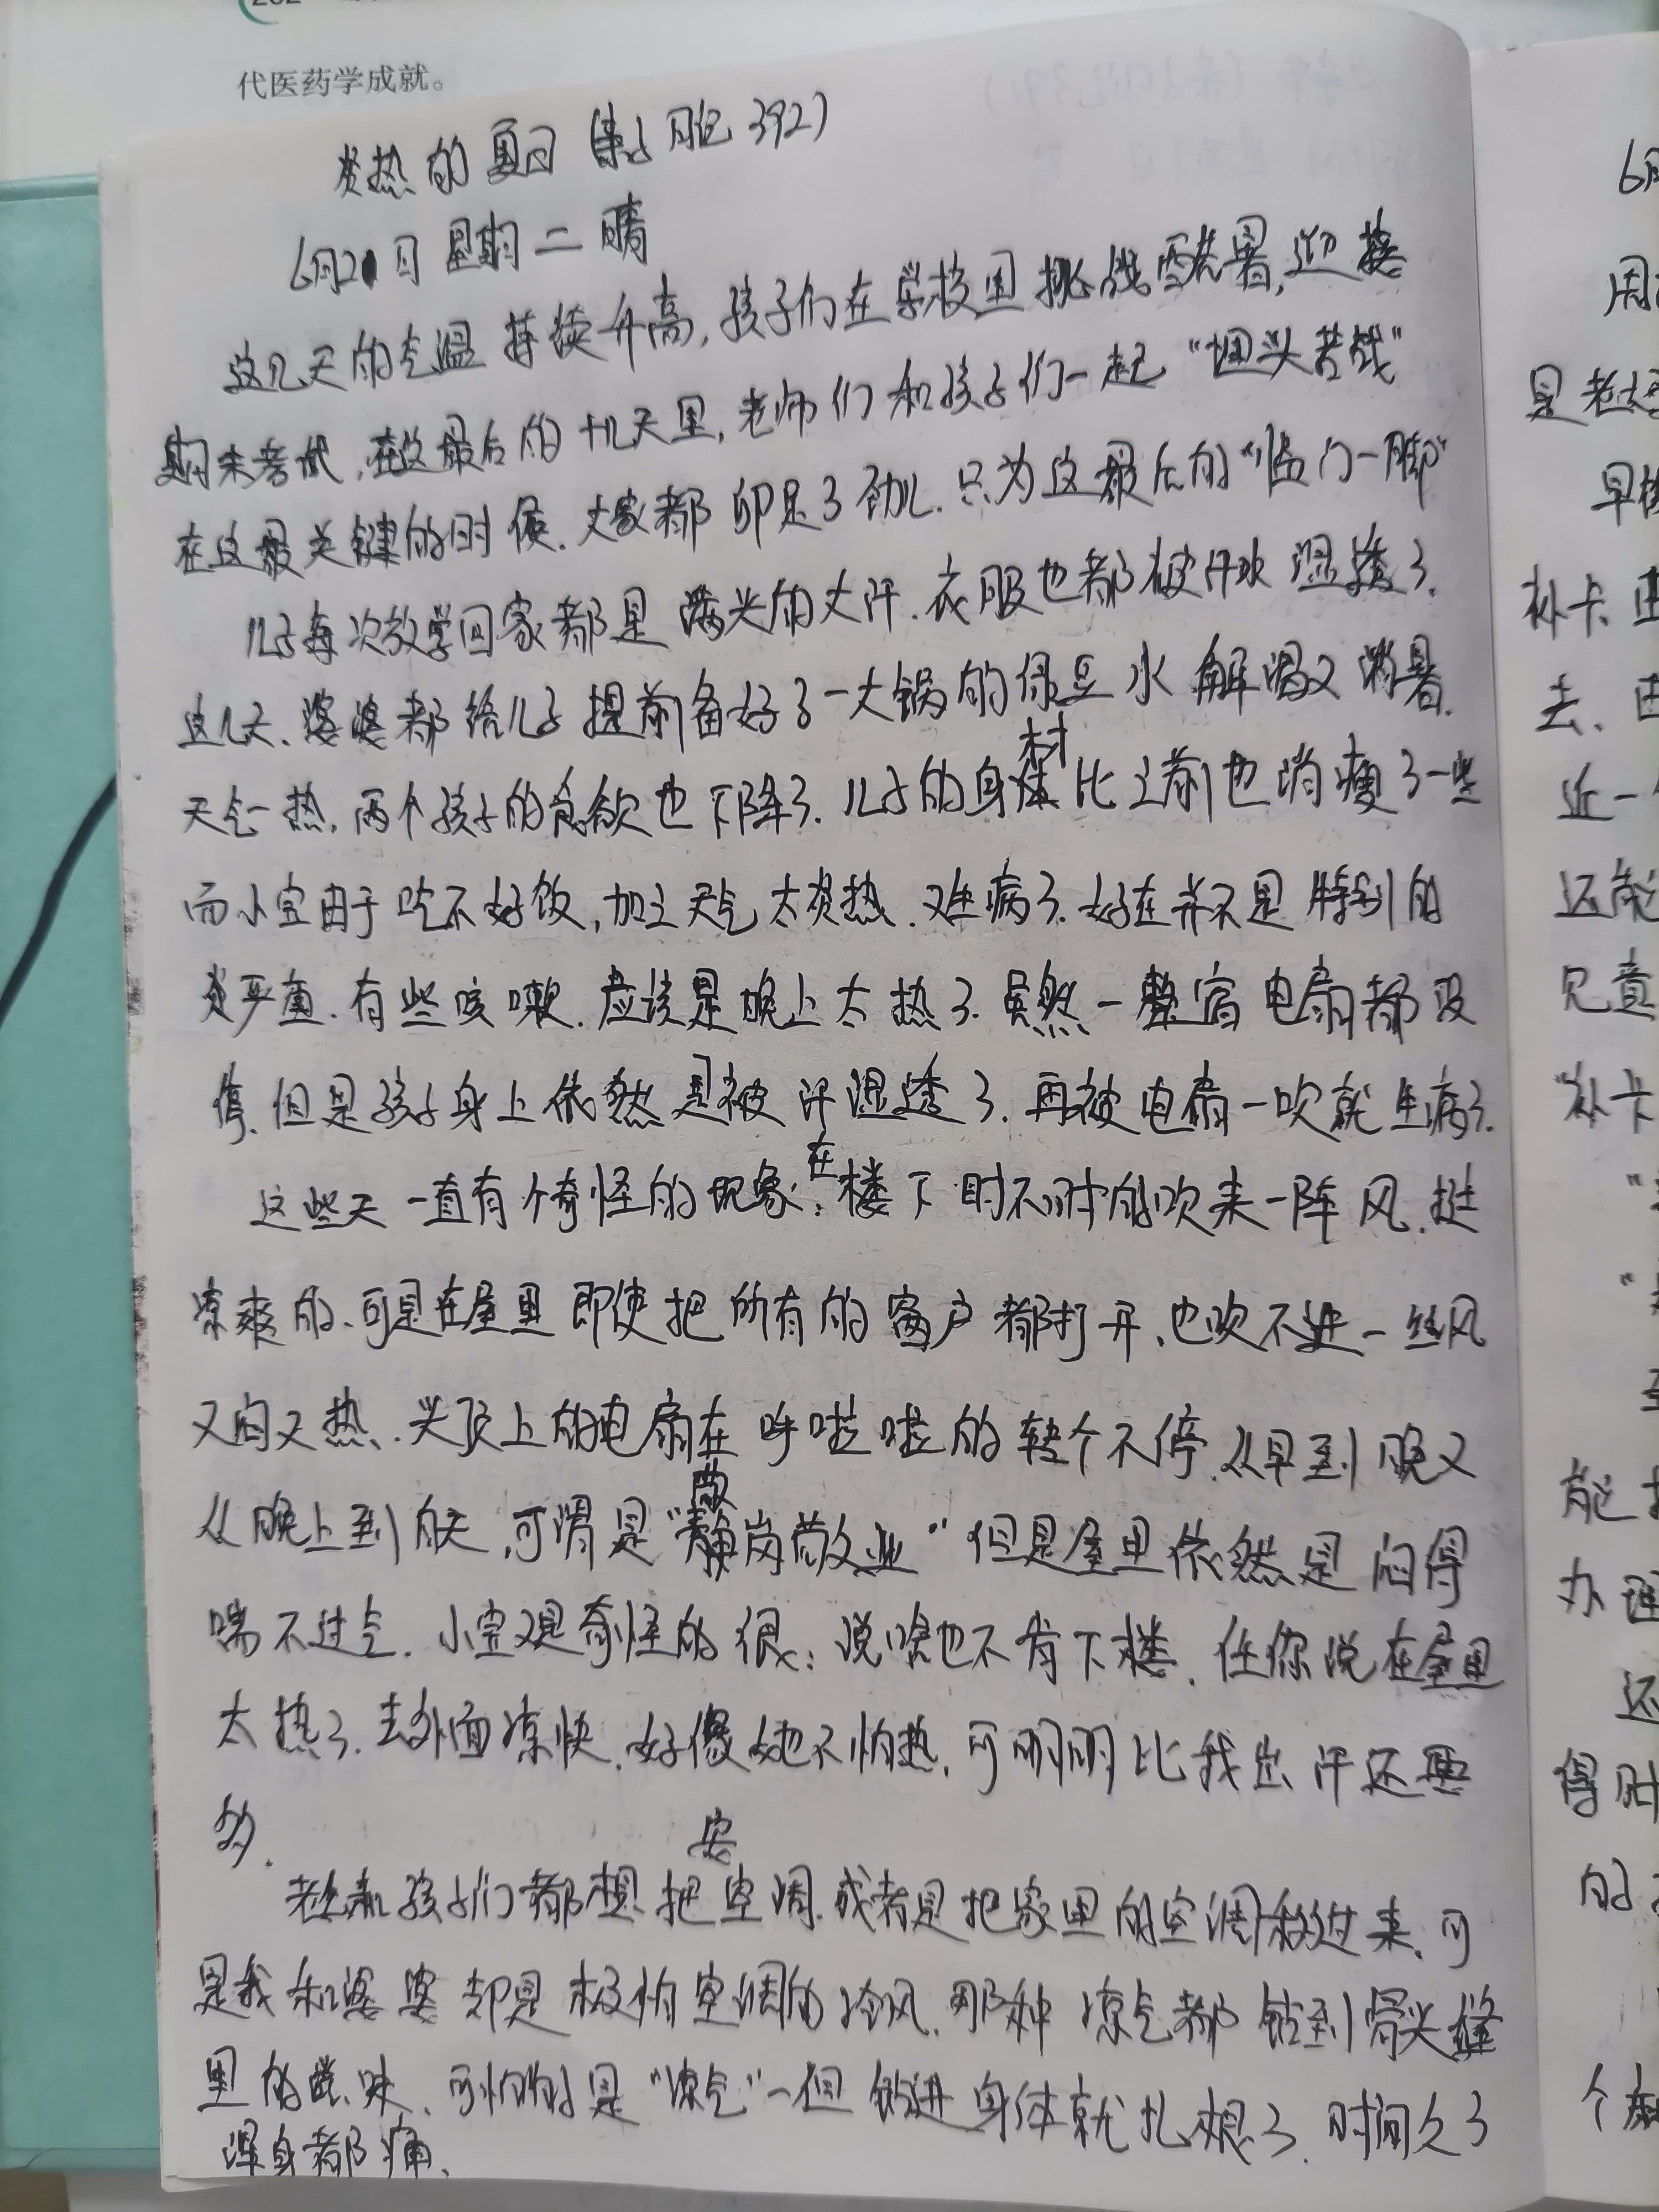 代医药学成就。
炎热的夏日 (亲子日记 392)
6月21日 星期二 晴
这几天的气温 持续升高,孩子们在学校里挑战酷暑,迎接
期末考试,在这最后的十几天里,老师们和孩子们一起"埋头苦战"
在这最关键的时候.大家都卯足了劲儿.只为这最后的"临门一脚"
儿子每次放学回家都是满头的大汗.衣服也都被汗水湿透了.
这几天、婆婆都给儿子提前备好了一大锅的绿豆水 解渴又消暑.
天气一热,两个孩子的食欲也下降了.儿子的身材比之前也消瘦了一些
而小宝由于吃不好饭,加之天气太炎热.又生病了.好在并不是特别的
严重.有些咳嗽.应该是晚上太热了.虽然一整宿电扇都没
停.但是孩子身上依然是被汗湿透了.再被电扇一吹就生病了.
这些天一直有个奇怪的现象:在楼下时不时的吹来一阵风.挺
凉爽的、可是在屋里即使把所有的窗户都打开、也吹不进一丝风
又闷又热.头顶上的电扇在呼啦啦的转个不停.从早到晚又
从晚上到白天,可谓是"敬岗敬业"但是屋里依然是闷得
喘不过气.小宝又是奇怪的很:说啥也不肯下楼.任你说在屋里
太热了.去外面凉快.好像她不怕热,可明明比我出汗还要
多.
老公和孩子们都想把安空调.或者是把家里的空调移过来.可
是我和婆婆却是极怕空调的冷风.那种凉气都钻到骨头缝
里的滋味、可怕的是"凉气"一但钻进身体就扎根了.时间久了
浑身都痛.
6月
周
是老
早
补卡
去、
近一
还能
见意
"补卡
能
办理
还
得
的
个